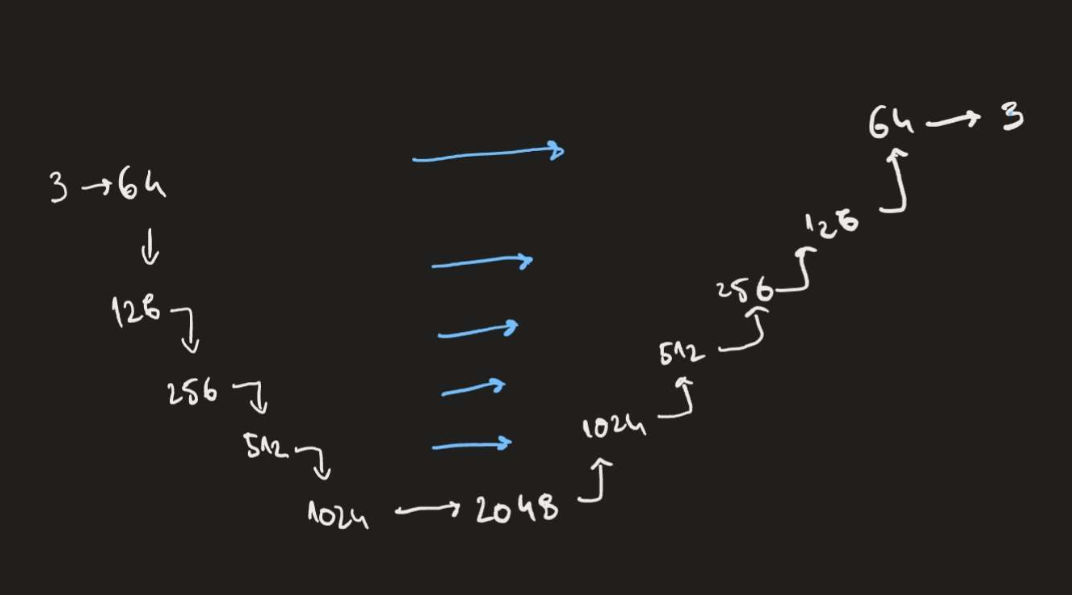 3 → 64
128
256
512
1024 → 2048
1024
512
256
128
64 → 3